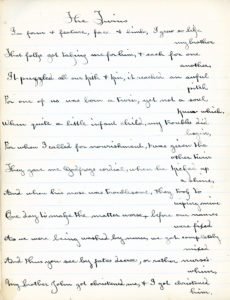 The Twins
In form & feature, face & limb, I grew so like
my brother
That folks got taking me for him, & each for one
another,
It puzzled all our kith & kin, it reached an awful
pitch
For one of us was born a twin, yet not a soul
knew which.
When quite a little infant child, my troubles did
begin,
For when I called for nourishment, 'twas given the
other twin
They gave me Godfreys cordial, when he kicked up
a shine,
And when his nose was troublesome, they took to
wiping mine
One day to make the matter worse, before our names
were fixed
As we were being washed by nurse, we got completely
mixed
And thus you see by fates decree, or rather nurses
whim,
My brother John got christened me, & I got christened
him,